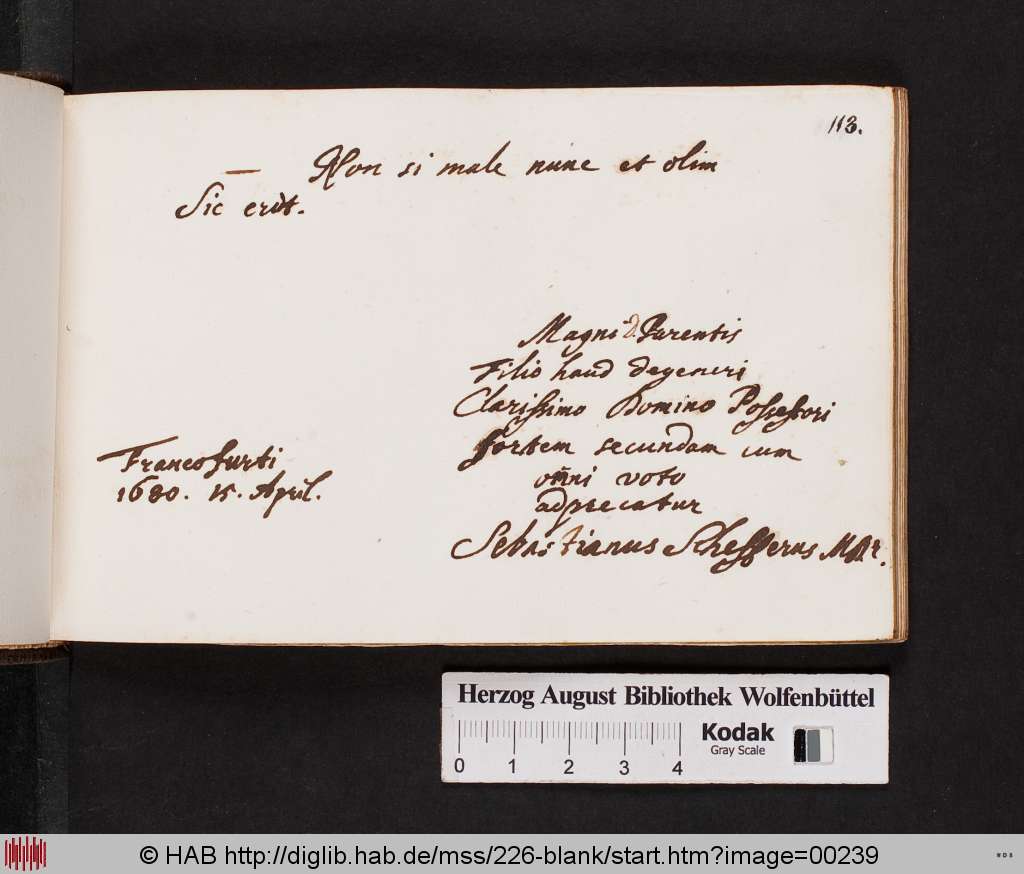 113.
— Non si male nunc et olim
Sic erit.
Magni Parentis
Filio haud degeneri
Clarissimo Domino Possessori
sortem secundam cum
om̄ni voto
adprecatur
Sebastianus Schefferus
Francofurti
1680. 15. April.
Herzog August Bibliothek Wolfenbüttel
Kodak
Gray Scale
0 1 2 3 4
© HAB http://diglib.hab.de/mss/226-blank/start.htm?image=00239
WDB